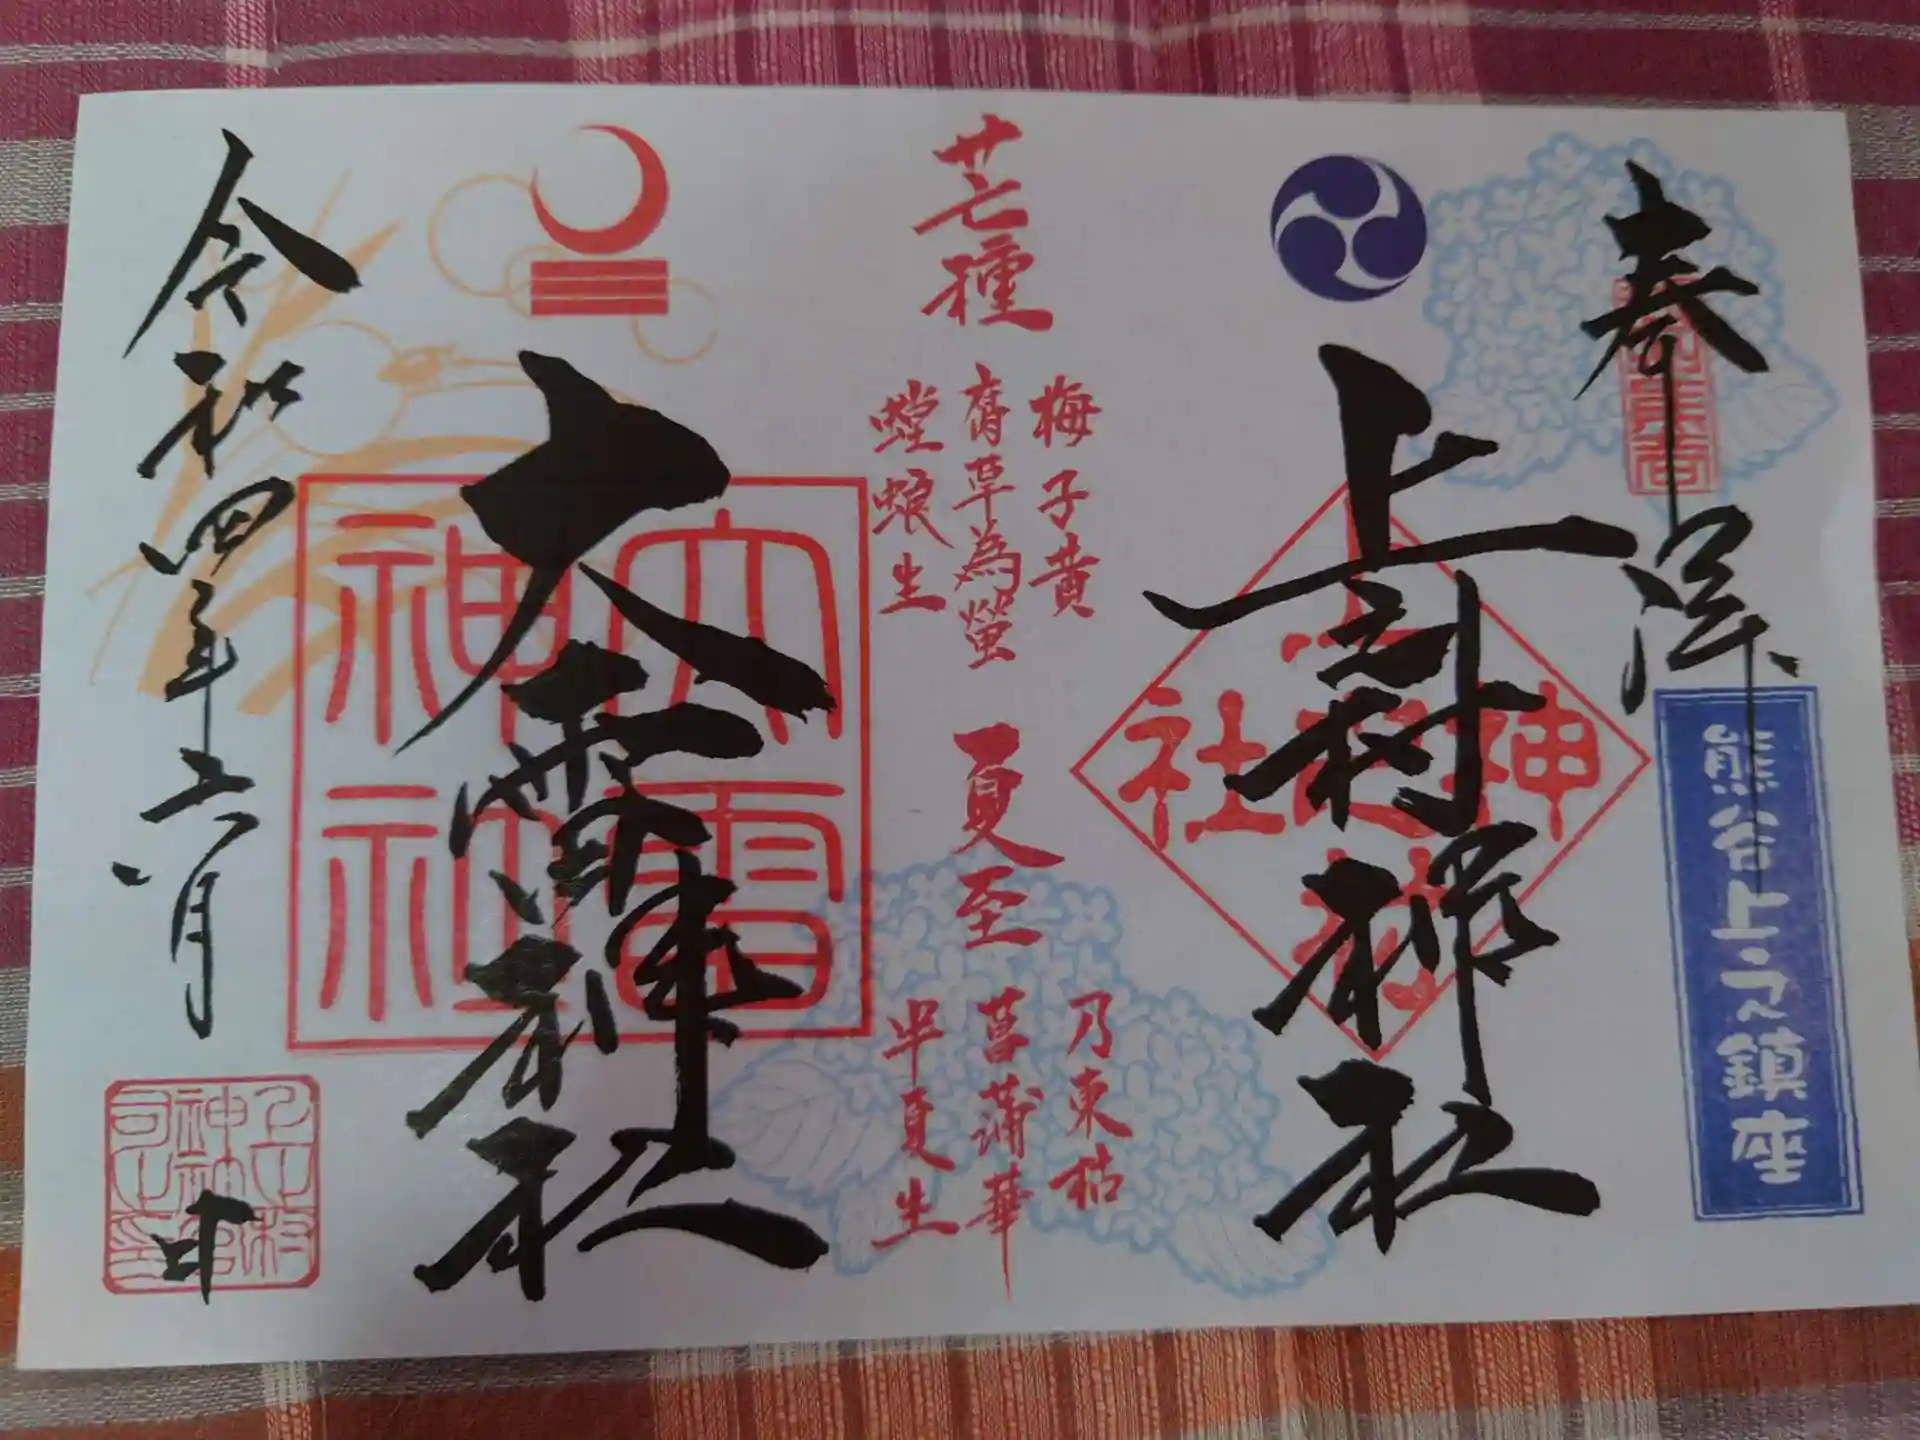 奉拝
熊谷上之鎮座
上之村神社
芒種
梅子黄
腐草為螢
螳螂生
夏至
乃東枯
菖蒲華
半夏生
大雷神社
大雷
神社
令和四年六月